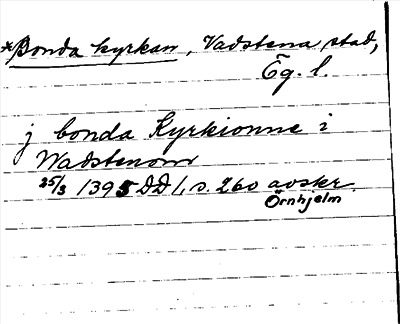 *Bonda kyrkan, Vadstena stad,
Ög. l.
j bonda Kyrkionne i
Wadstenom
25/3 1395 DD 1, s. 260 avskr.
Örnhjelm